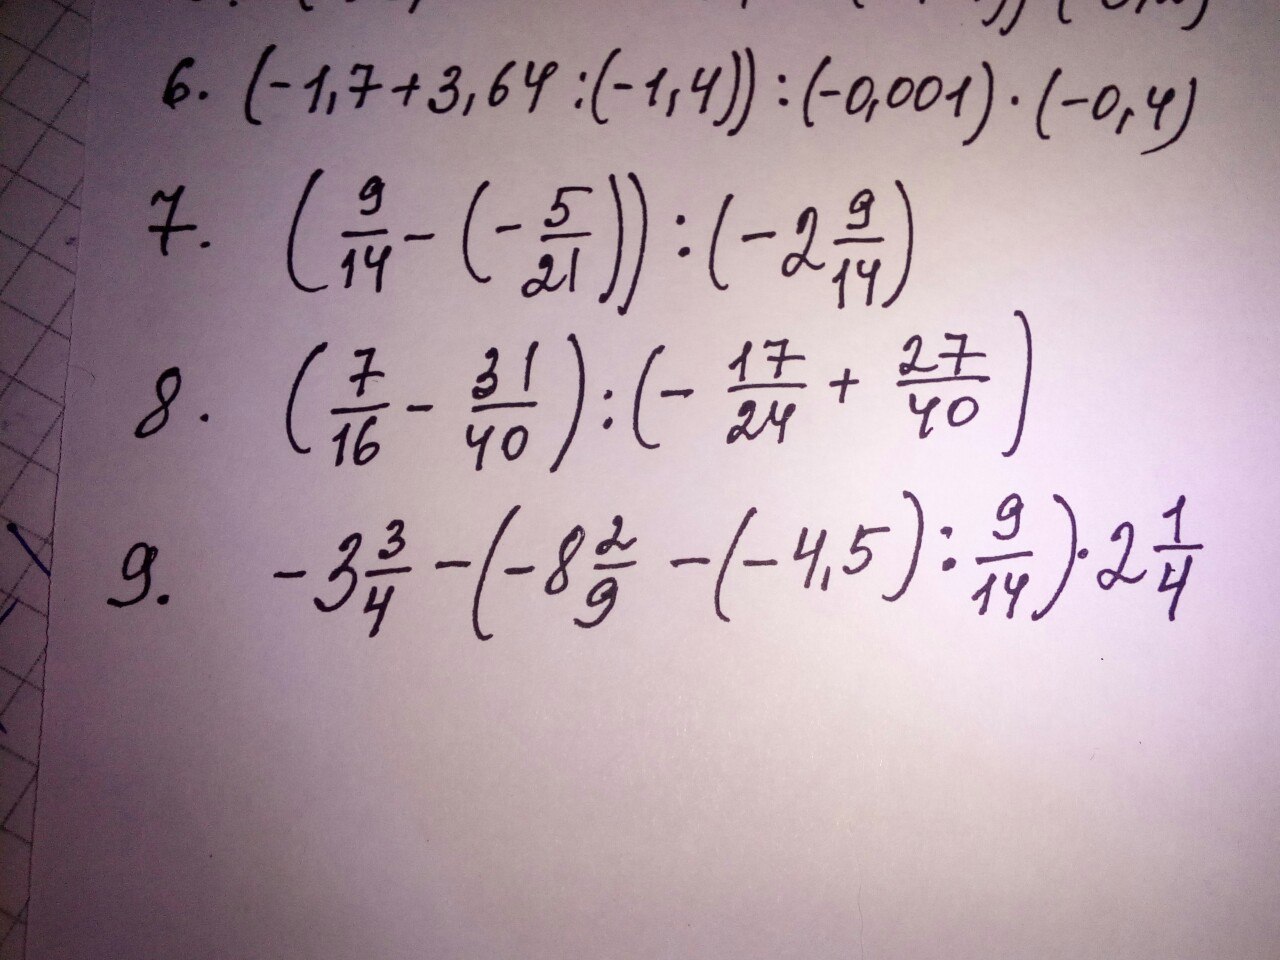 6. (-1,7+3,64:(-1,4)):(-0,001)·(-0,4)
7. (9/14-(-5/21)):(-2 9/14)
8. (7/16-31/40):(-17/24+27/40)
9. -3 3/4-(-8 2/9-(-4,5):9/14)·2 1/4